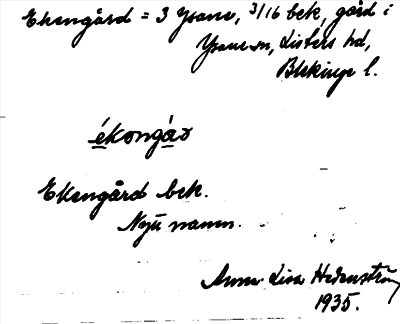 Ekengård = 3 Ysane, 3/16 bek, gård i
Ysane sn, Listers hd,
Blekinge l.
ékongạ́ṛ
Ekengård bek.
Nytt namn.
Anna-Lisa Hedenström
1935.